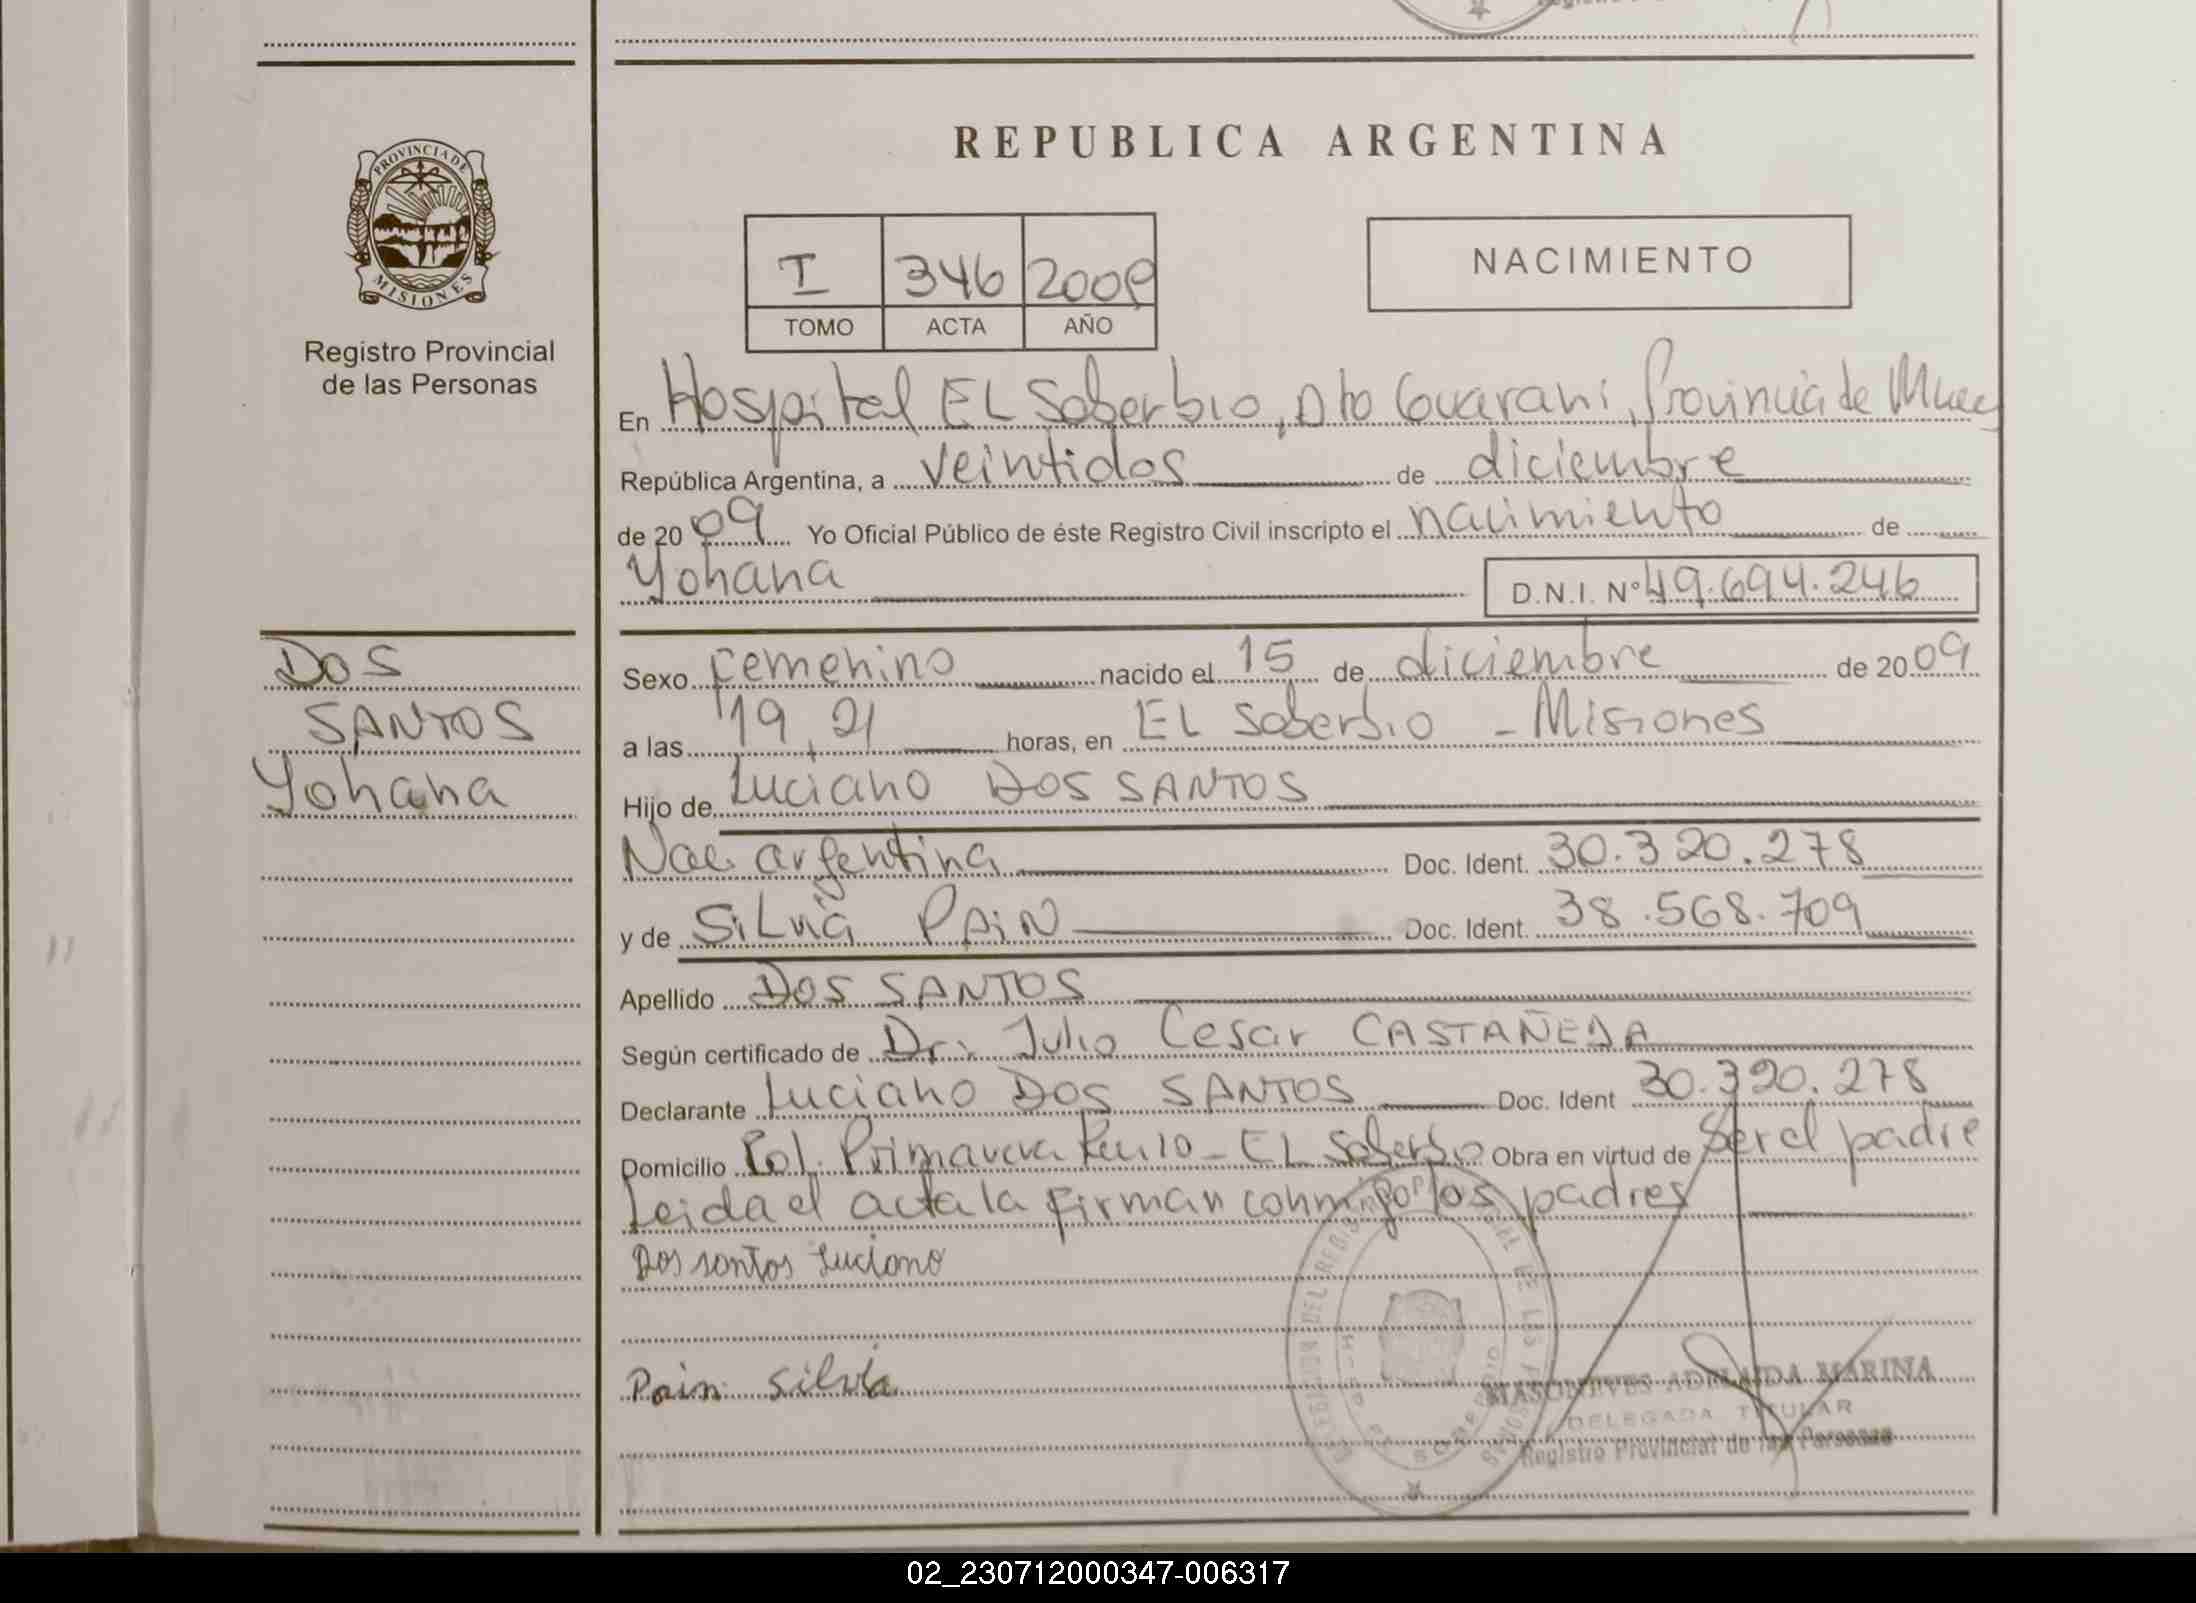 REPUBLICA ARGENTINA
PROVINCIA DE
MISIONES
Registro Provincial
de las Personas
I 346 2009
TOMO ACTA AÑO
NACIMIENTO
En Hospital EL Soberbio, Dto Guarani, Provincia de
República Argentina, a veintidos de diciembre
de 2009 Yo Oficial Público de éste Registro Civil inscripto el nacimiento de
Yohana D.N.I. Nº 49.694.246
DOS
SANTOS
Yohana
Sexo femenino nacido el 15 de diciembre de 2009
a las 19,21 horas, en EL Soberbio - Misiones
Hijo de Luciano DOS SANTOS
Nac. argentina Doc. Ident. 30.320.278
y de SiLvia PAiN Doc. Ident. 38.568.709
Apellido DOS SANTOS
Según certificado de Dr. Julio Cesar CASTAÑEDA
Declarante Luciano DOS SANTOS Doc. Ident 30.320.278
Domicilio Col. Primavera - EL Soberbio Obra en virtud de Ser el padre
Leida el acta la firman conmigo los padres
Dos santos Luciano
Pain Silvia
MASONEVES ADELAIDA MARINA
DELEGADA TITULAR
Registro Provincial de las Personas
02_230712000347-006317